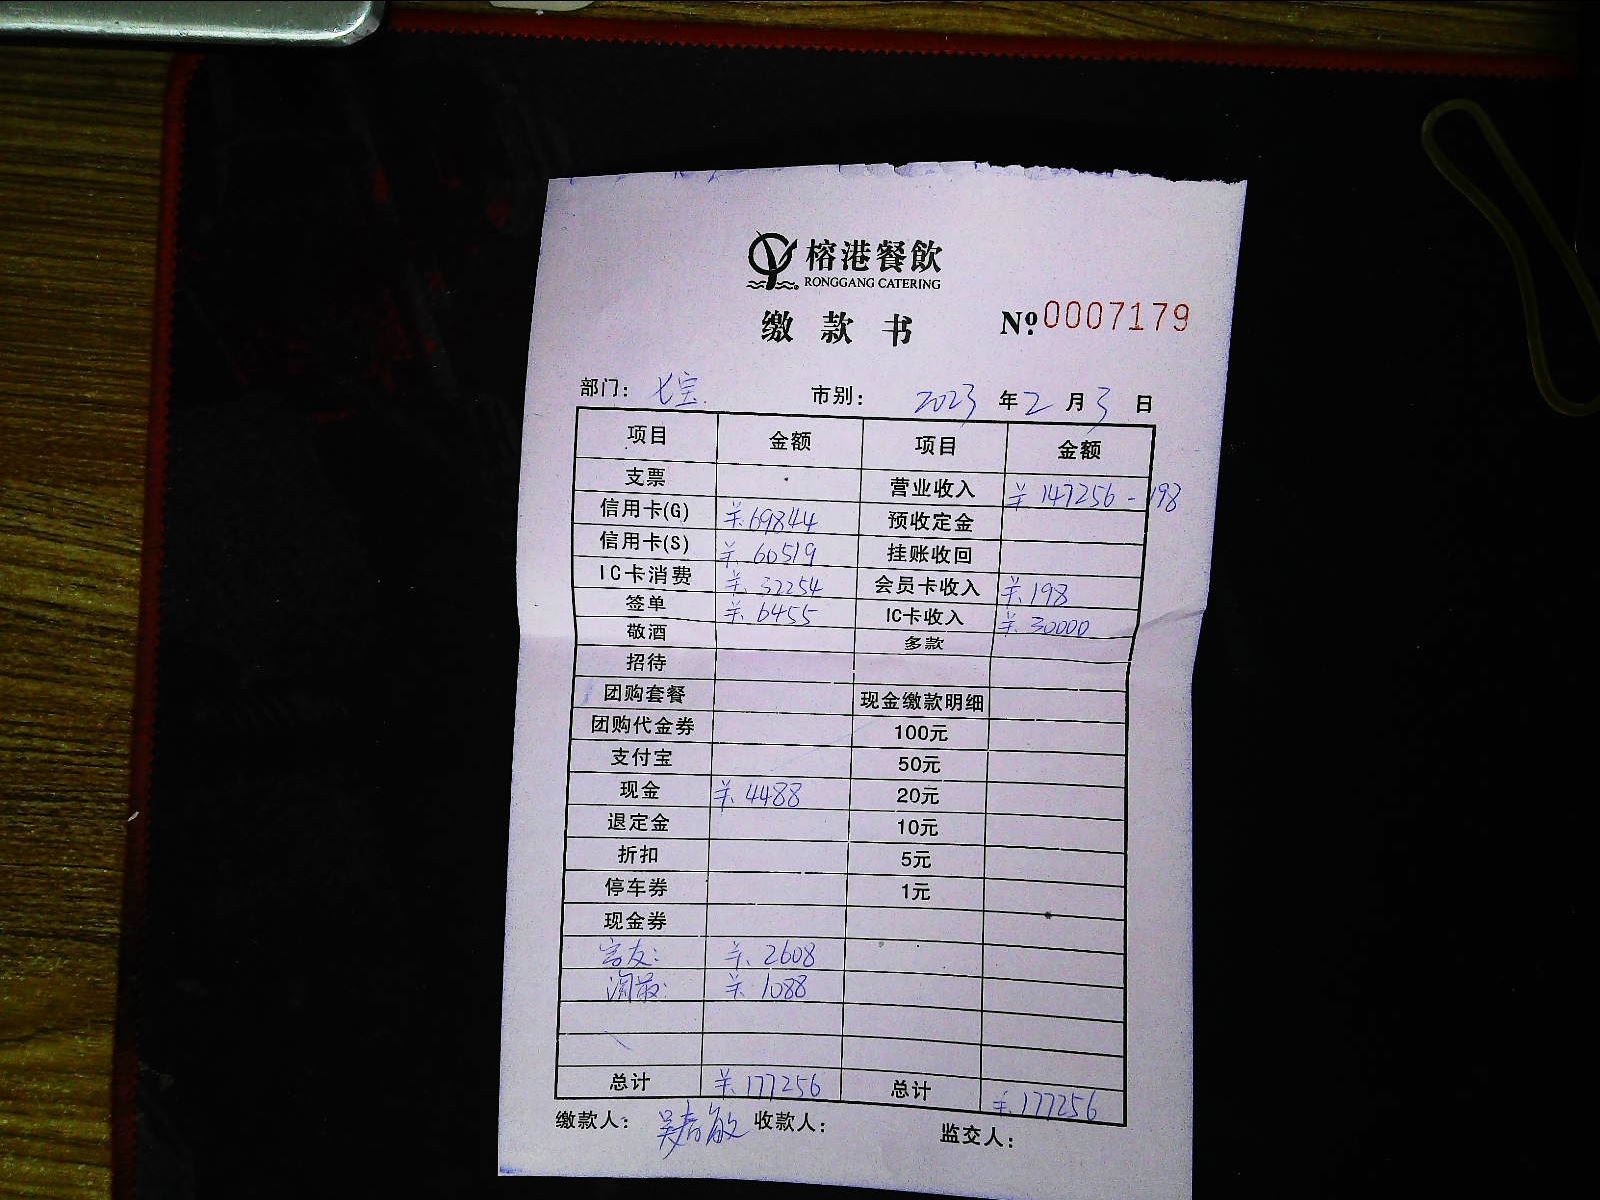 榕港餐飲
RONGGANG CATERING
缴款书 №0007179
部门: 七宝. 市别: 2023年2月3日
项目 金额 项目 金额
支票 营业收入 ¥147256-198
信用卡(G) ¥.69844 预收定金
信用卡(S) ¥.60519 挂账收回
IC卡消费 ¥.32254 会员卡收入 ¥.198
签单 ¥.6455 IC卡收入 ¥.30000
敬酒 多款
招待
团购套餐 现金缴款明细
团购代金券 100元
支付宝 50元
现金 ¥.4488 20元
退定金 10元
折扣 5元
停车券 1元
现金券
¥.2608
¥.1088
总计 ¥.177256 总计 ¥.177256
缴款人: 收款人: 监交人: